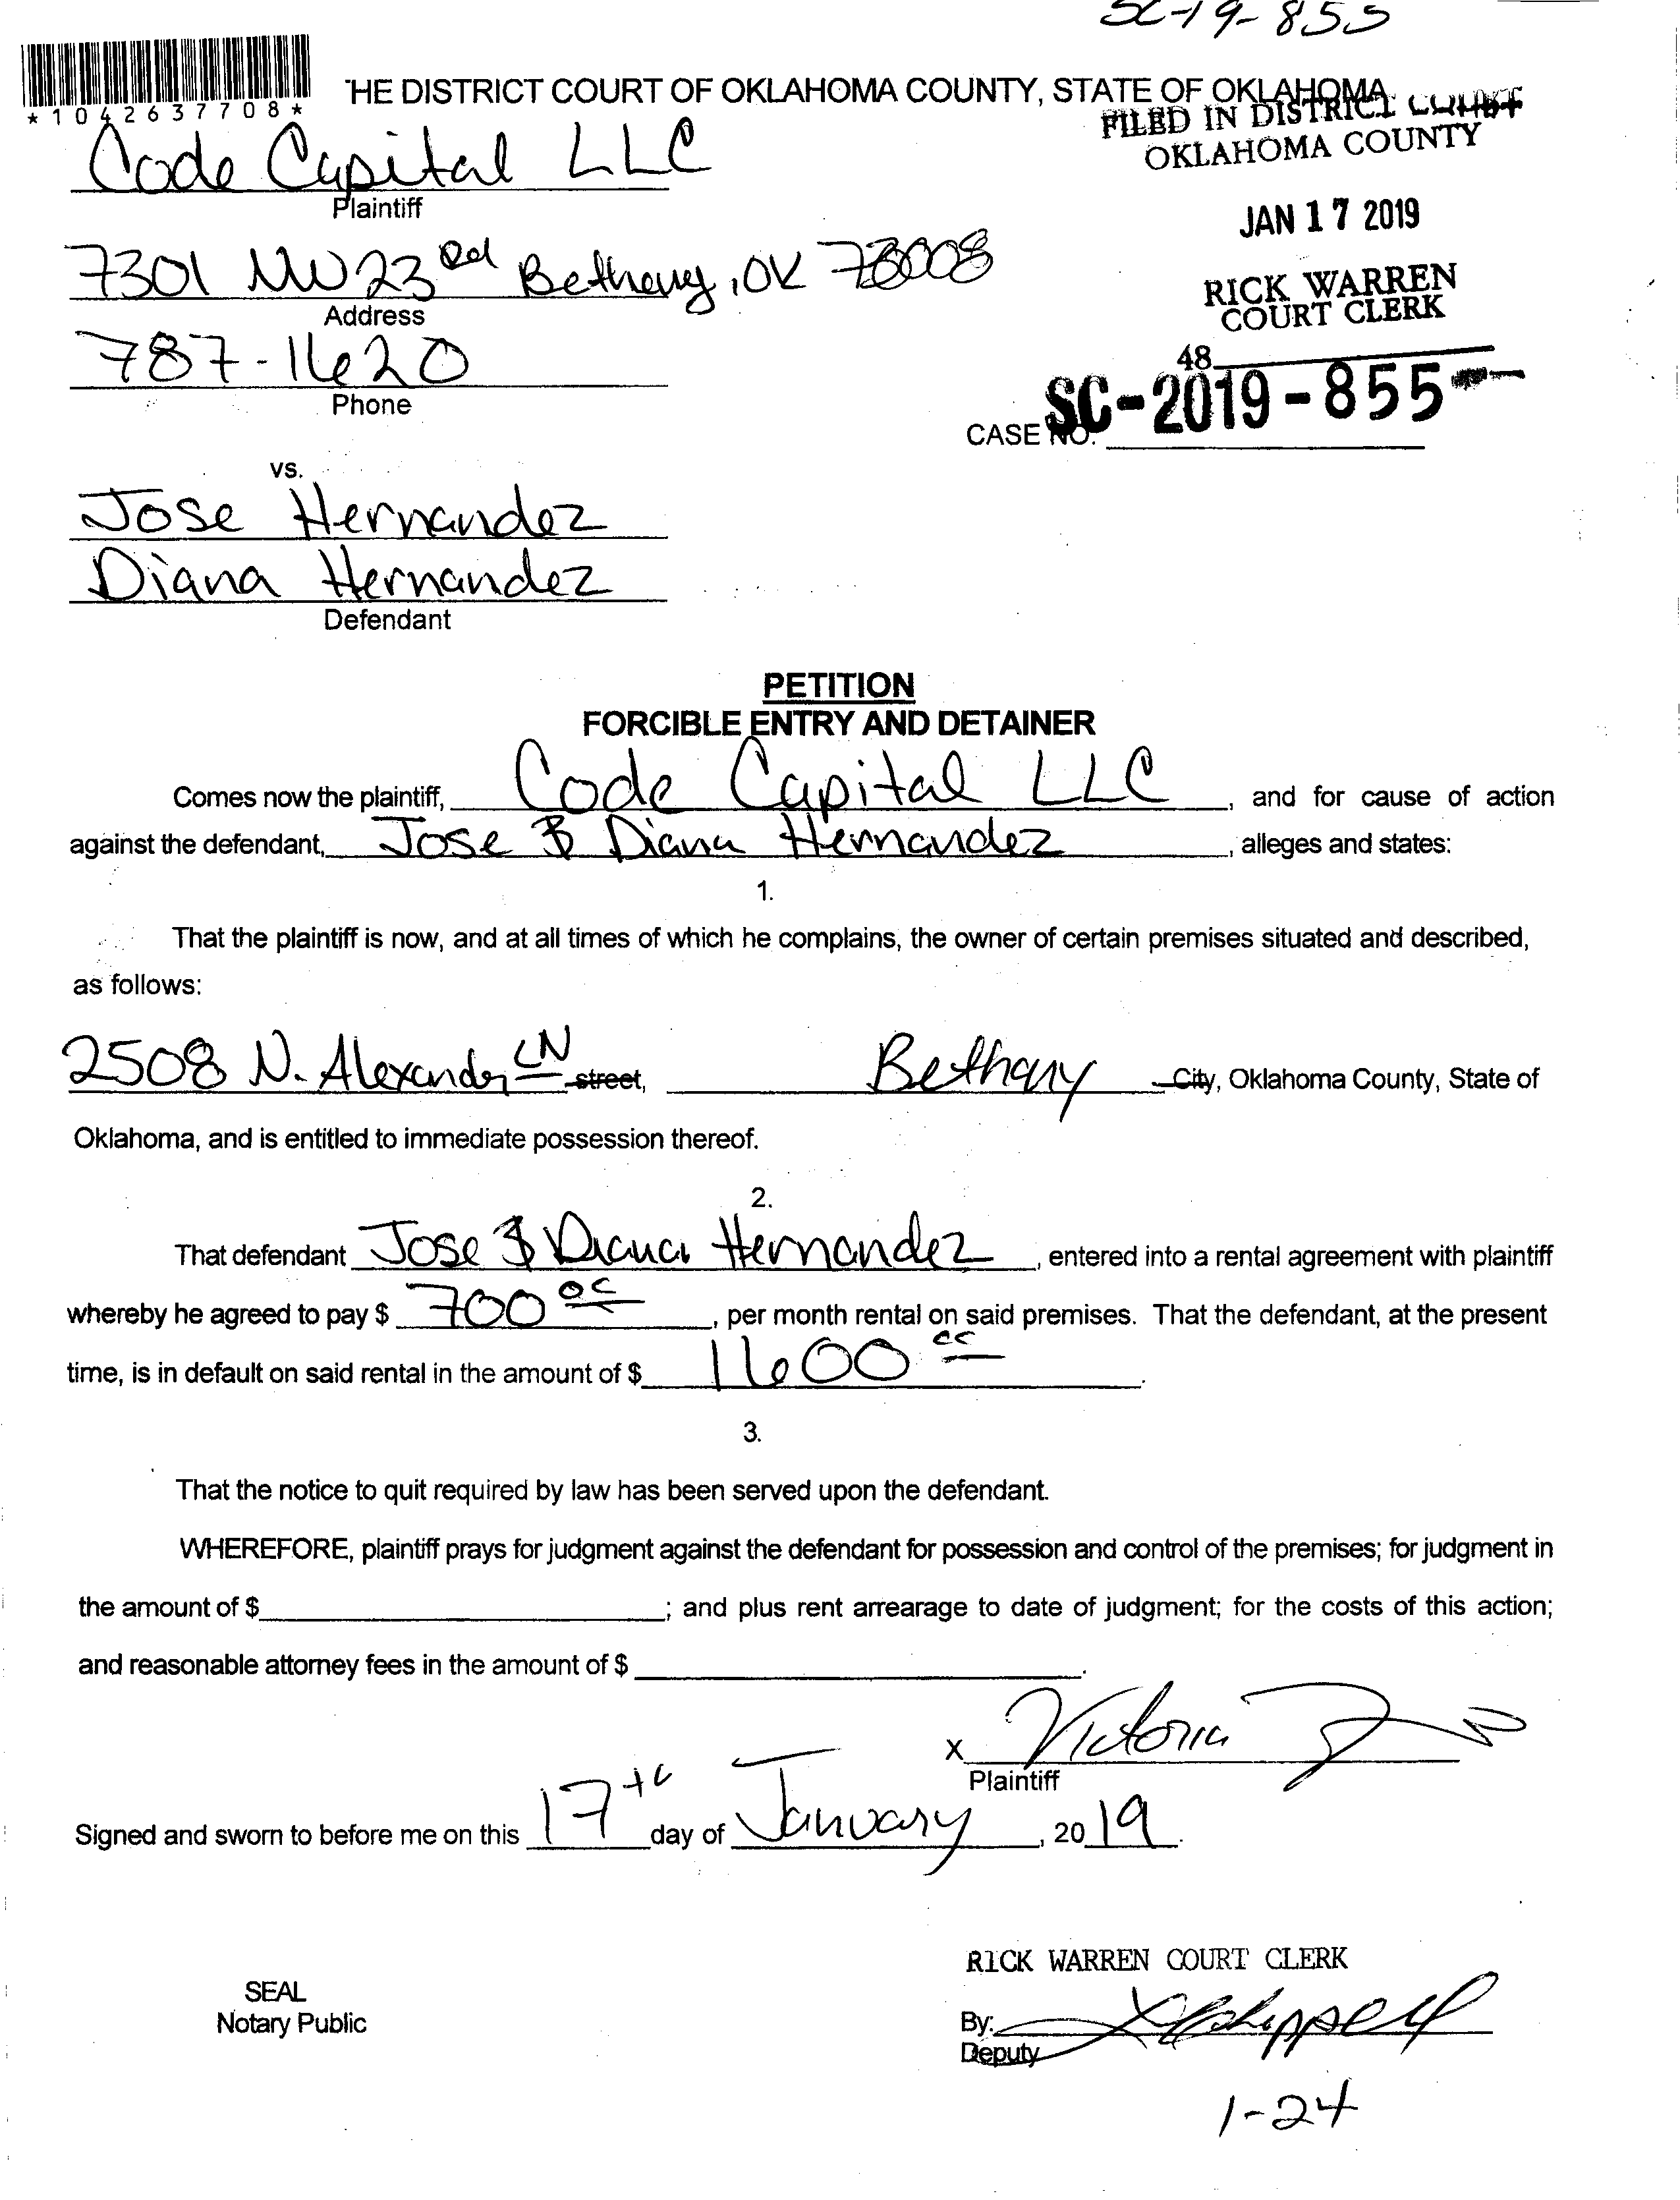 SC-19-855
*1042637708*
HE DISTRICT COURT OF OKLAHOMA COUNTY, STATE OF OKLAHOMA
FILED IN DISTRICT COURT
OKLAHOMA COUNTY
Code Capital LLC
Plaintiff
JAN 17 2019
7301 NW 23rd Bethany, OK 73008
Address
RICK WARREN
COURT CLERK
787-1620
Phone
48
SC-2019-855
CASE NO.
vs.
Jose Hernandez
Diana Hernandez
Defendant
PETITION
FORCIBLE ENTRY AND DETAINER
Comes now the plaintiff, Code Capital LLC, and for cause of action
against the defendant, Jose & Diana Hernandez, alleges and states:
1.
That the plaintiff is now, and at all times of which he complains, the owner of certain premises situated and described,
as follows:
2508 N. Alexander LN street, Bethany City, Oklahoma County, State of
Oklahoma, and is entitled to immediate possession thereof.
2.
That defendant Jose & Diana Hernandez, entered into a rental agreement with plaintiff
whereby he agreed to pay $ 700 00, per month rental on said premises. That the defendant, at the present
time, is in default on said rental in the amount of $ 1600 00.
3.
That the notice to quit required by law has been served upon the defendant.
WHEREFORE, plaintiff prays for judgment against the defendant for possession and control of the premises; for judgment in
the amount of $ ; and plus rent arrearage to date of judgment; for the costs of this action;
and reasonable attorney fees in the amount of $ .
X Victoria
Plaintiff
Signed and sworn to before me on this 17th day of January, 2019.
RICK WARREN COURT CLERK
SEAL
Notary Public
By:
Deputy
1-24